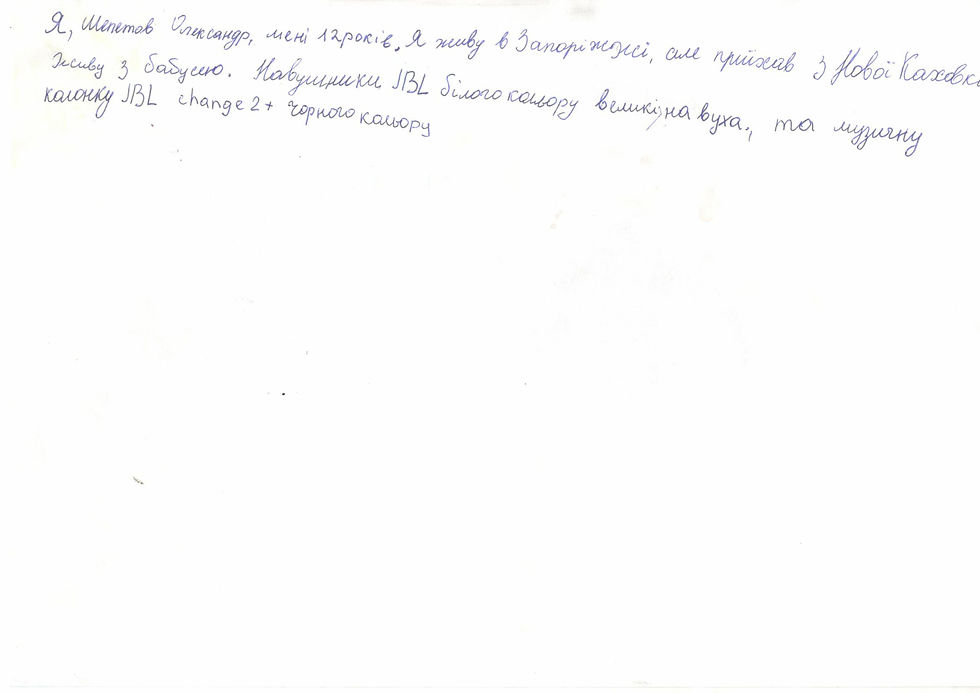 Я, Шепетов Олександр, мені 12 років. Я живу в Запоріжжі, але приїхав з Нової Каховки
Живу з бабусею. Навушники JBL білого кольору великі, на вуха., та музичну
колонку JBL change 2+ чорного кольору